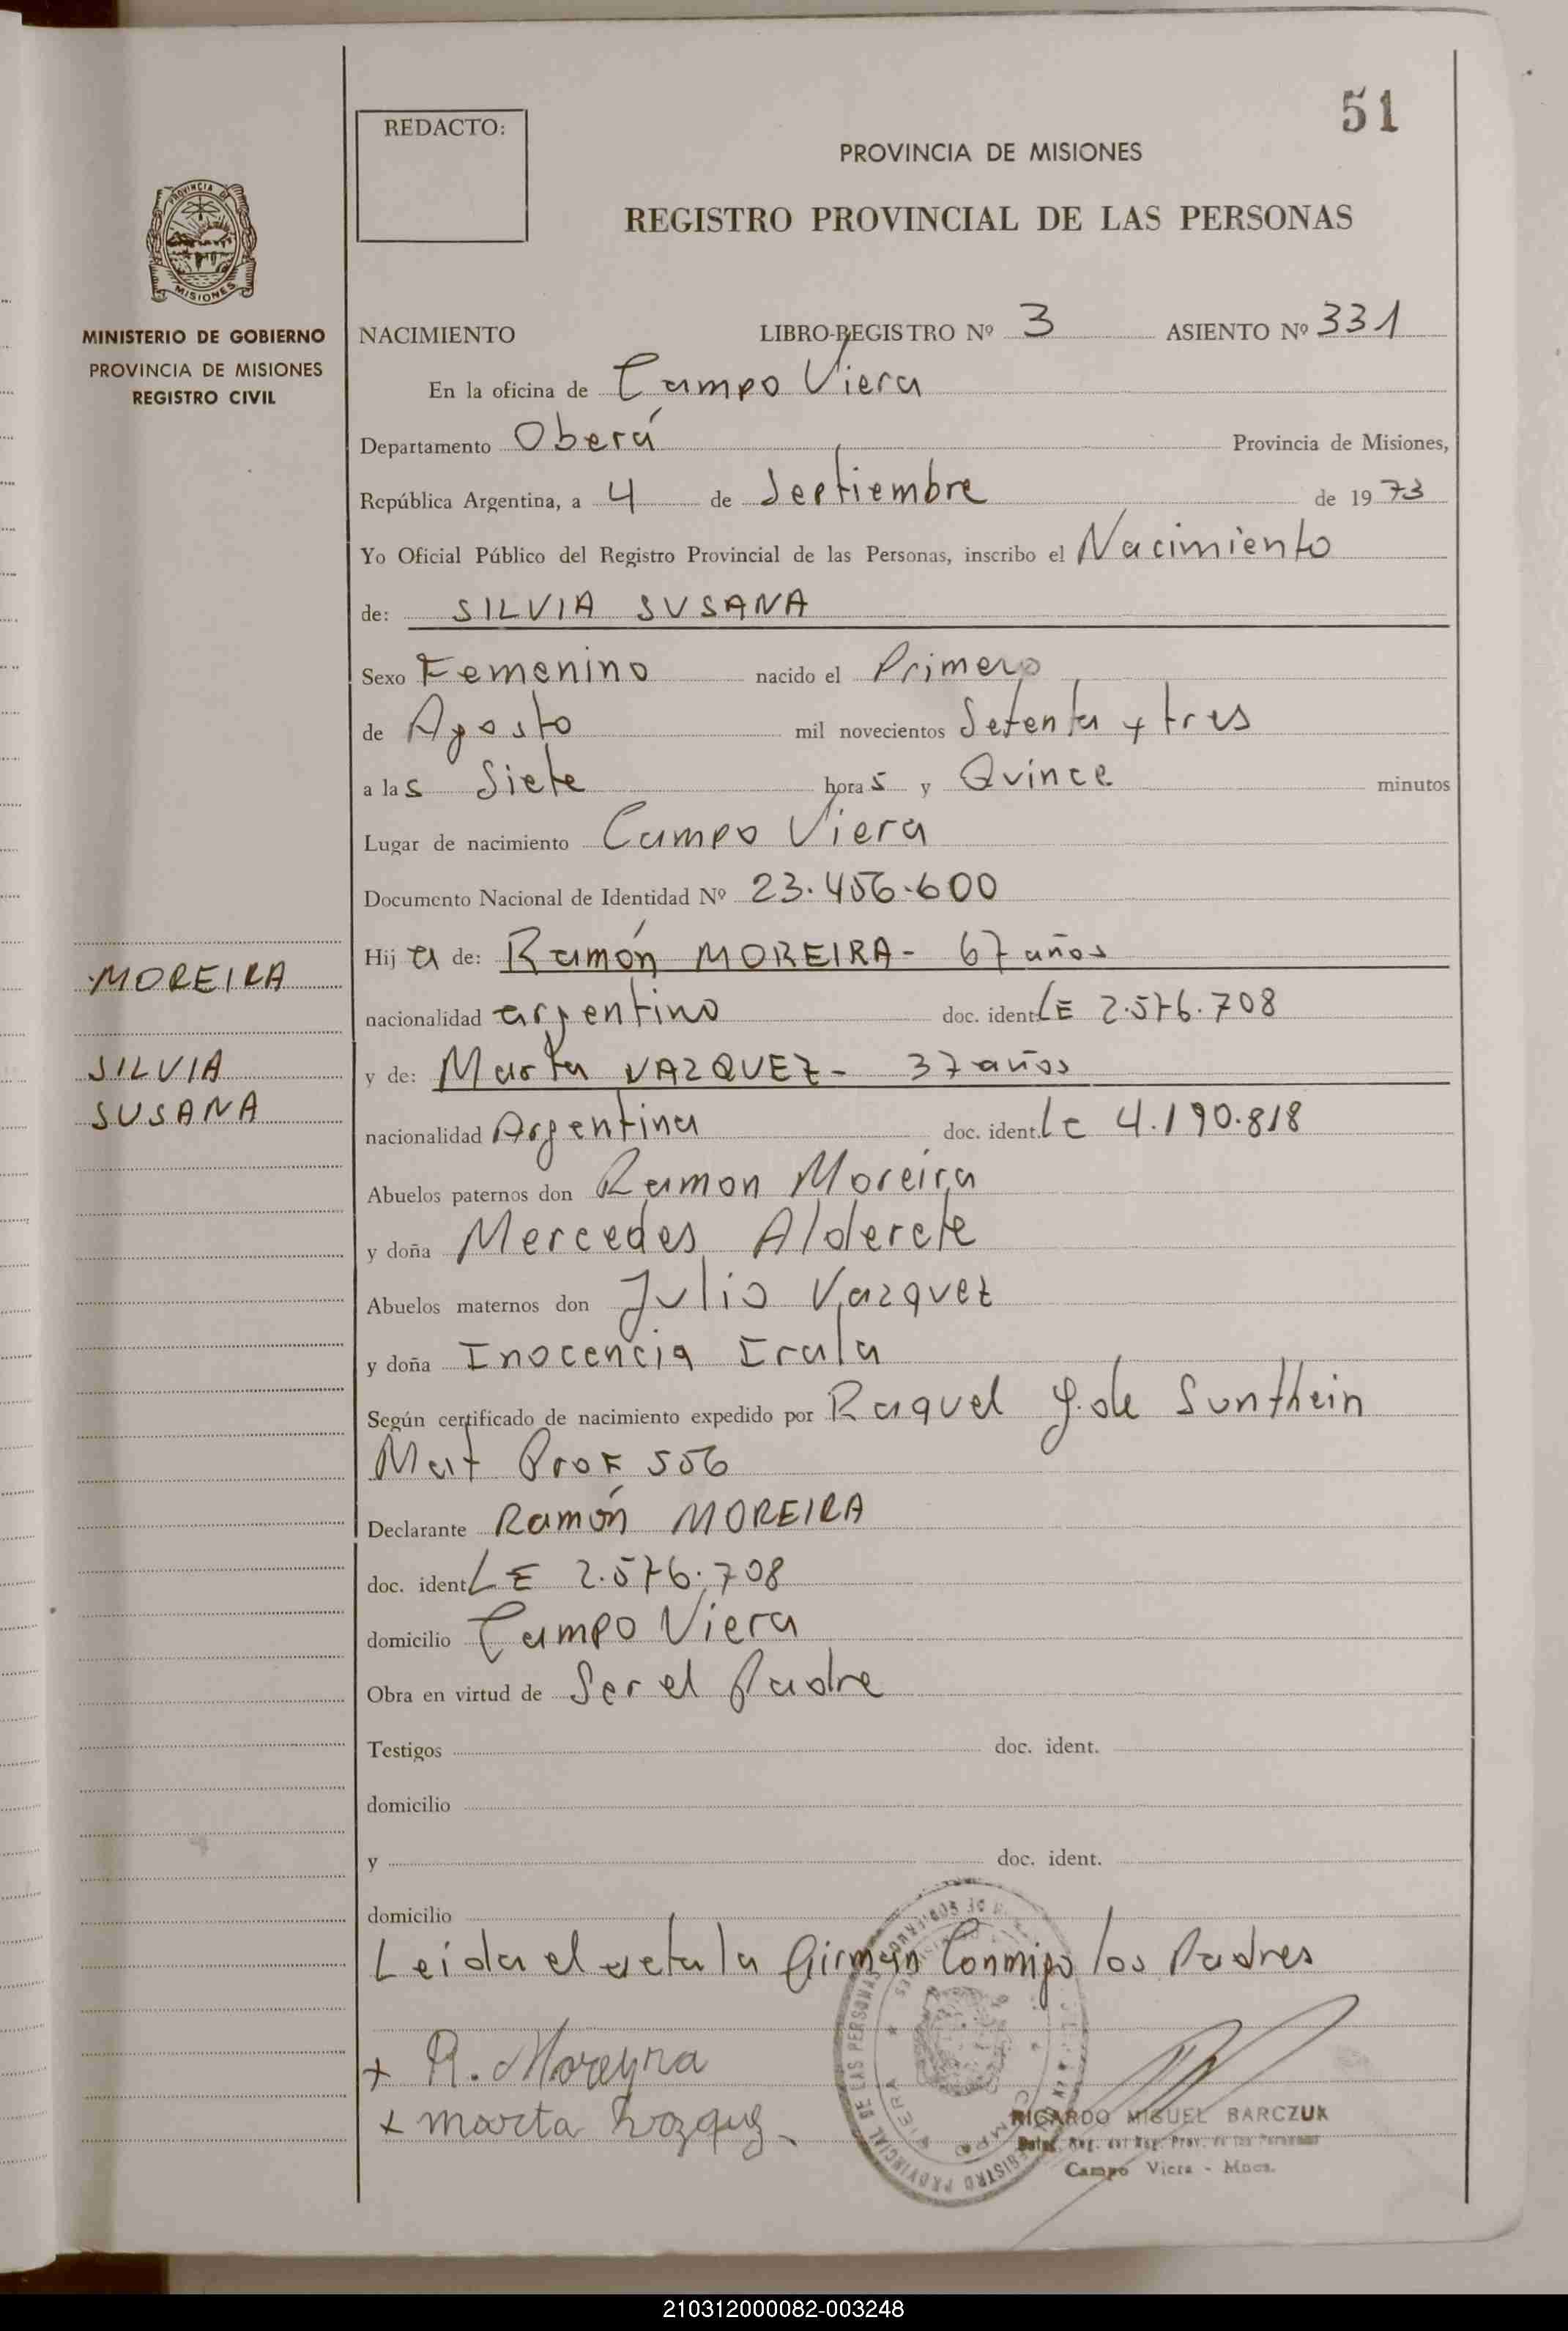 51
REDACTO:
PROVINCIA DE MISIONES
REGISTRO PROVINCIAL DE LAS PERSONAS
PROVINCIA DE
MISIONES
MINISTERIO DE GOBIERNO
PROVINCIA DE MISIONES
REGISTRO CIVIL
NACIMIENTO LIBRO-REGISTRO Nº 3 ASIENTO Nº 331
En la oficina de Campo Viera
Departamento Oberá Provincia de Misiones,
República Argentina, a 4 de Septiembre de 1973
Yo Oficial Público del Registro Provincial de las Personas, inscribo el Nacimiento
de: SILVIA SUSANA
Sexo Femenino nacido el Primero
de Agosto mil novecientos Setenta y tres
a las Siete horas y Quince minutos
Lugar de nacimiento Campo Viera
Documento Nacional de Identidad Nº 23.456.600
MOREIRA
SILVIA
SUSANA
Hija de: Ramón MOREIRA - 67 años
nacionalidad argentino doc. ident. LE 2.576.708
y de: Marta VAZQUEZ - 37 años
nacionalidad Argentina doc. ident. Lc 4.190.818
Abuelos paternos don Ramon Moreira
y doña Mercedes Alderete
Abuelos maternos don Julio Vazquez
y doña Inocencia Irala
Según certificado de nacimiento expedido por Raquel J. de Sunthein
Mat Prof 556
Declarante Ramón MOREIRA
doc. ident LE 2.576.708
domicilio Campo Viera
Obra en virtud de Ser el Padre
Testigos doc. ident.
domicilio
y doc. ident.
domicilio
Leida el acta la Firman Conmigo los Padres
+ R. Moreyra
x marta
REGISTRO PROVINCIAL DE LAS PERSONAS
CAMPO VIERA
RICARDO MIGUEL BARCZUK
Deleg. Reg. del Reg. Prov. de las Personas
Campo Viera - Mnes.
210312000082-003248